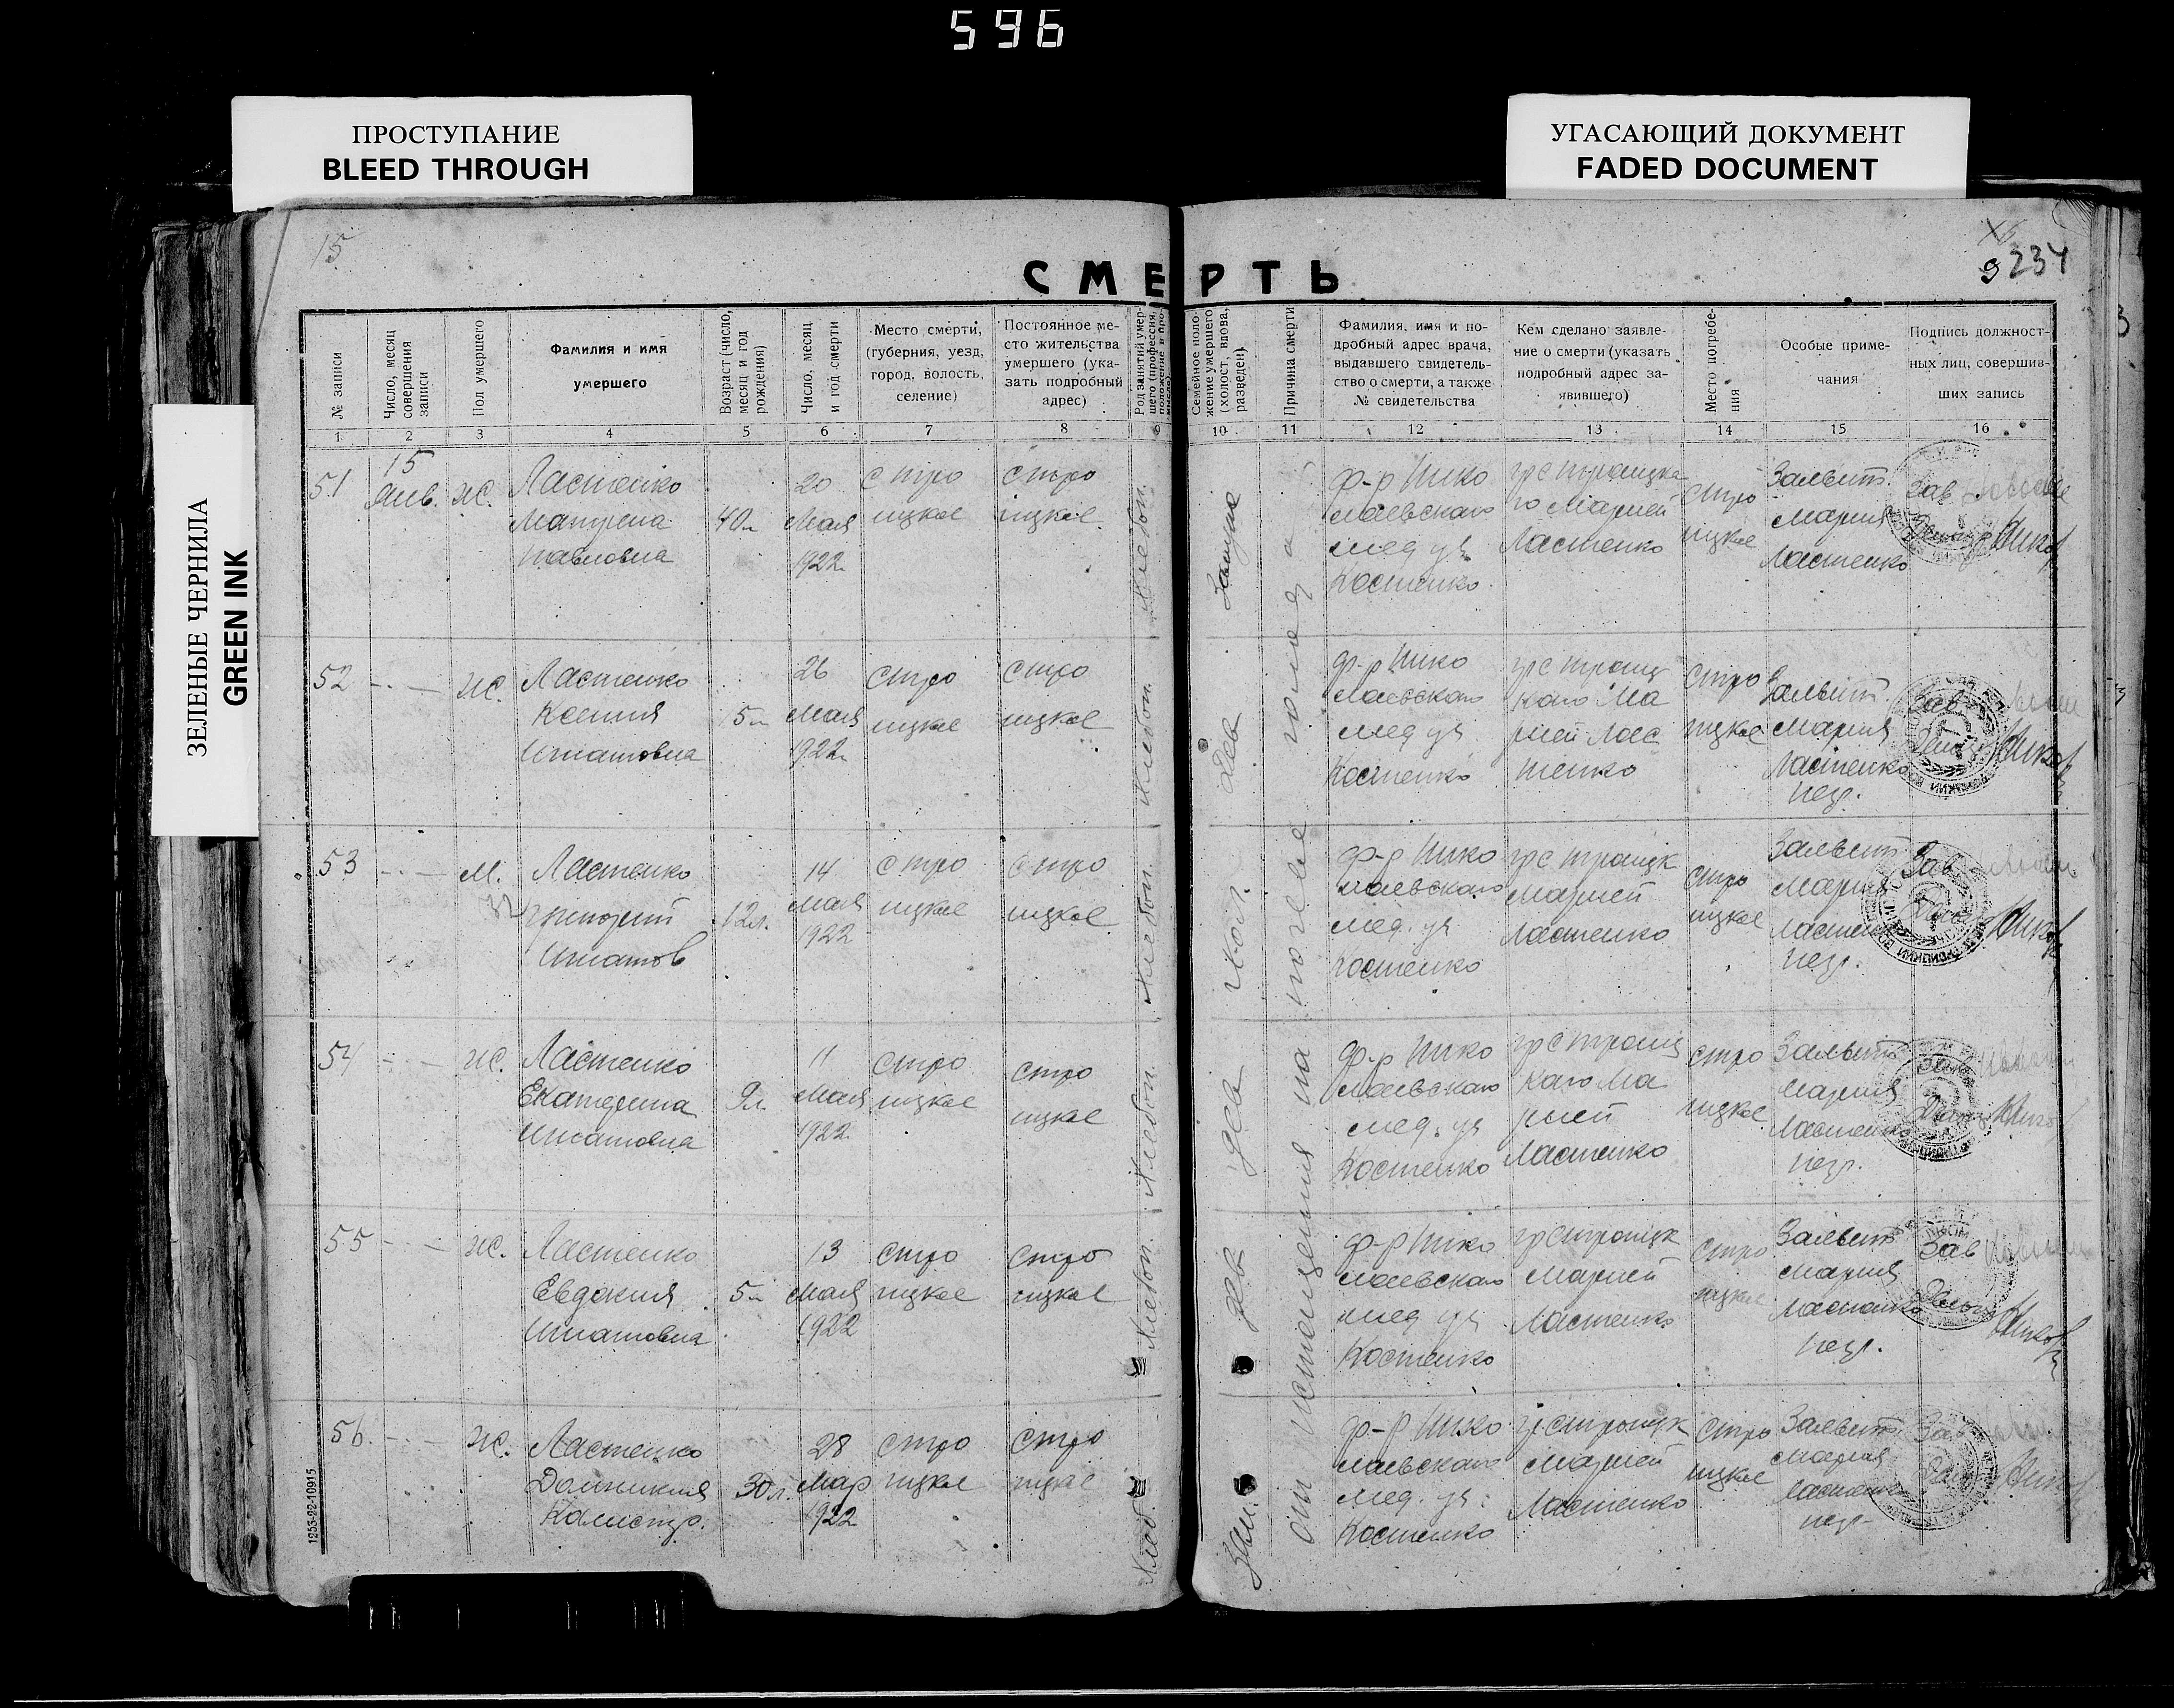 596
ПРОСТУПАНИЕ
BLEED THROUGH
УГАСАЮЩИЙ ДОКУМЕНТ
FADED DOCUMENT
ЗЕЛЕНЫЕ ЧЕРНИЛА
GREEN INK
15
234
СМЕРТЬ
№ записи
Число, месяц
совершения
записи
Пол умершего
Фамилия и имя
умершего
Возраст (число,
месяц и год
рождения)
Число, месяц
и год смерти
Место смерти,
(губерния, уезд,
город, волость,
селение)
Постоянное ме-
сто жительства
умершего (ука-
зать подробный
адрес)
Род занятий умер-
шего (профессия,
положение в про-
мысле)
Семейное поло-
жение умершего
(холост, вдова,
разведен)
Причина смерти
Фамилия, имя и по-
дробный адрес врача,
выдавшего свидетель-
ство о смерти, а также
№ свидетельства
Кем сделано заявле-
ние о смерти (указать
подробный адрес за-
явившего)
Место погребе-
ния
Особые приме-
чания
Подпись должност-
ных лиц, совершив-
ших запись
1 2 3 4 5 6 7 8 9 10 11 12 13 14 15 16
51
15
янв.
ж.
Ластенко
Матрена
Павловна
40л
20
Мая
1922
с тро
ицкое
с тро
ицкое
Хлебоп.
Замуж
ф-р Нико
лаевского
мед уч
Костенко
гр с троицко
го Марией
Ластенко
с тро
ицкое
Заявит.
Мария
Ластенко
Зав
52
ж.
Ластенко
Ксения
Игнатовна
15л
26
Мая
1922
с тро
ицкое
с тро
ицкое
Хлебоп.
дев
ф-р Нико
лаевского
мед уч
Костенко
гр с троиц
кого Ма
рией Лас
тенко
с тро
ицкое
Заявит.
Мария
Ластенко
негр.
Зав
53
М.
Ластенко
Григорий
Игнатов
12л.
14
мая
1922
с тро
ицкое
с тро
ицкое
Хлебоп.
хол.
ф-р Нико
лаевского
мед. уч
Костенко
гр с троицк
Марией
Ластенко
с тро
ицкое
Заявит
Мария
Ластенко
негр.
Зав
54
ж.
Ластенко
Екатерина
Игнатовна
9л.
11
Мая
1922
с тро
ицкое
с тро
ицкое
Хлебоп.
дев
ф-р Нико
лаевского
мед. уч
Костенко
гр с троиц
кого Ма
рией
Ластенко
с тро
ицкое
Заявит
Мария
Ластенко
негр.
Зав
55
ж.
Ластенко
Евдокия
Игнатовна
5л
13
Мая
1922
с тро
ицкое
с тро
ицкое
Хлебоп.
дев
ф-р Нико
лаевского
мед уч
Костенко
гр с троицк
Марией
Ластенко
с тро
ицкое
Заявит
Мария
Ластенко
негр.
Зав
56
ж.
Ластенко
Домникия
Калистр.
30л.
28
Мар
1922
с тро
ицкое
с тро
ицкое
Хлеб.
Зам.
ф-р Нико
лаевского
мед. уч.
Костенко
гр с троицк
Марией
Ластенко
с тро
ицкое
Заявит
Мария
Ластенко
негр
Зав
от истощения на почве голода
1253-22-10915